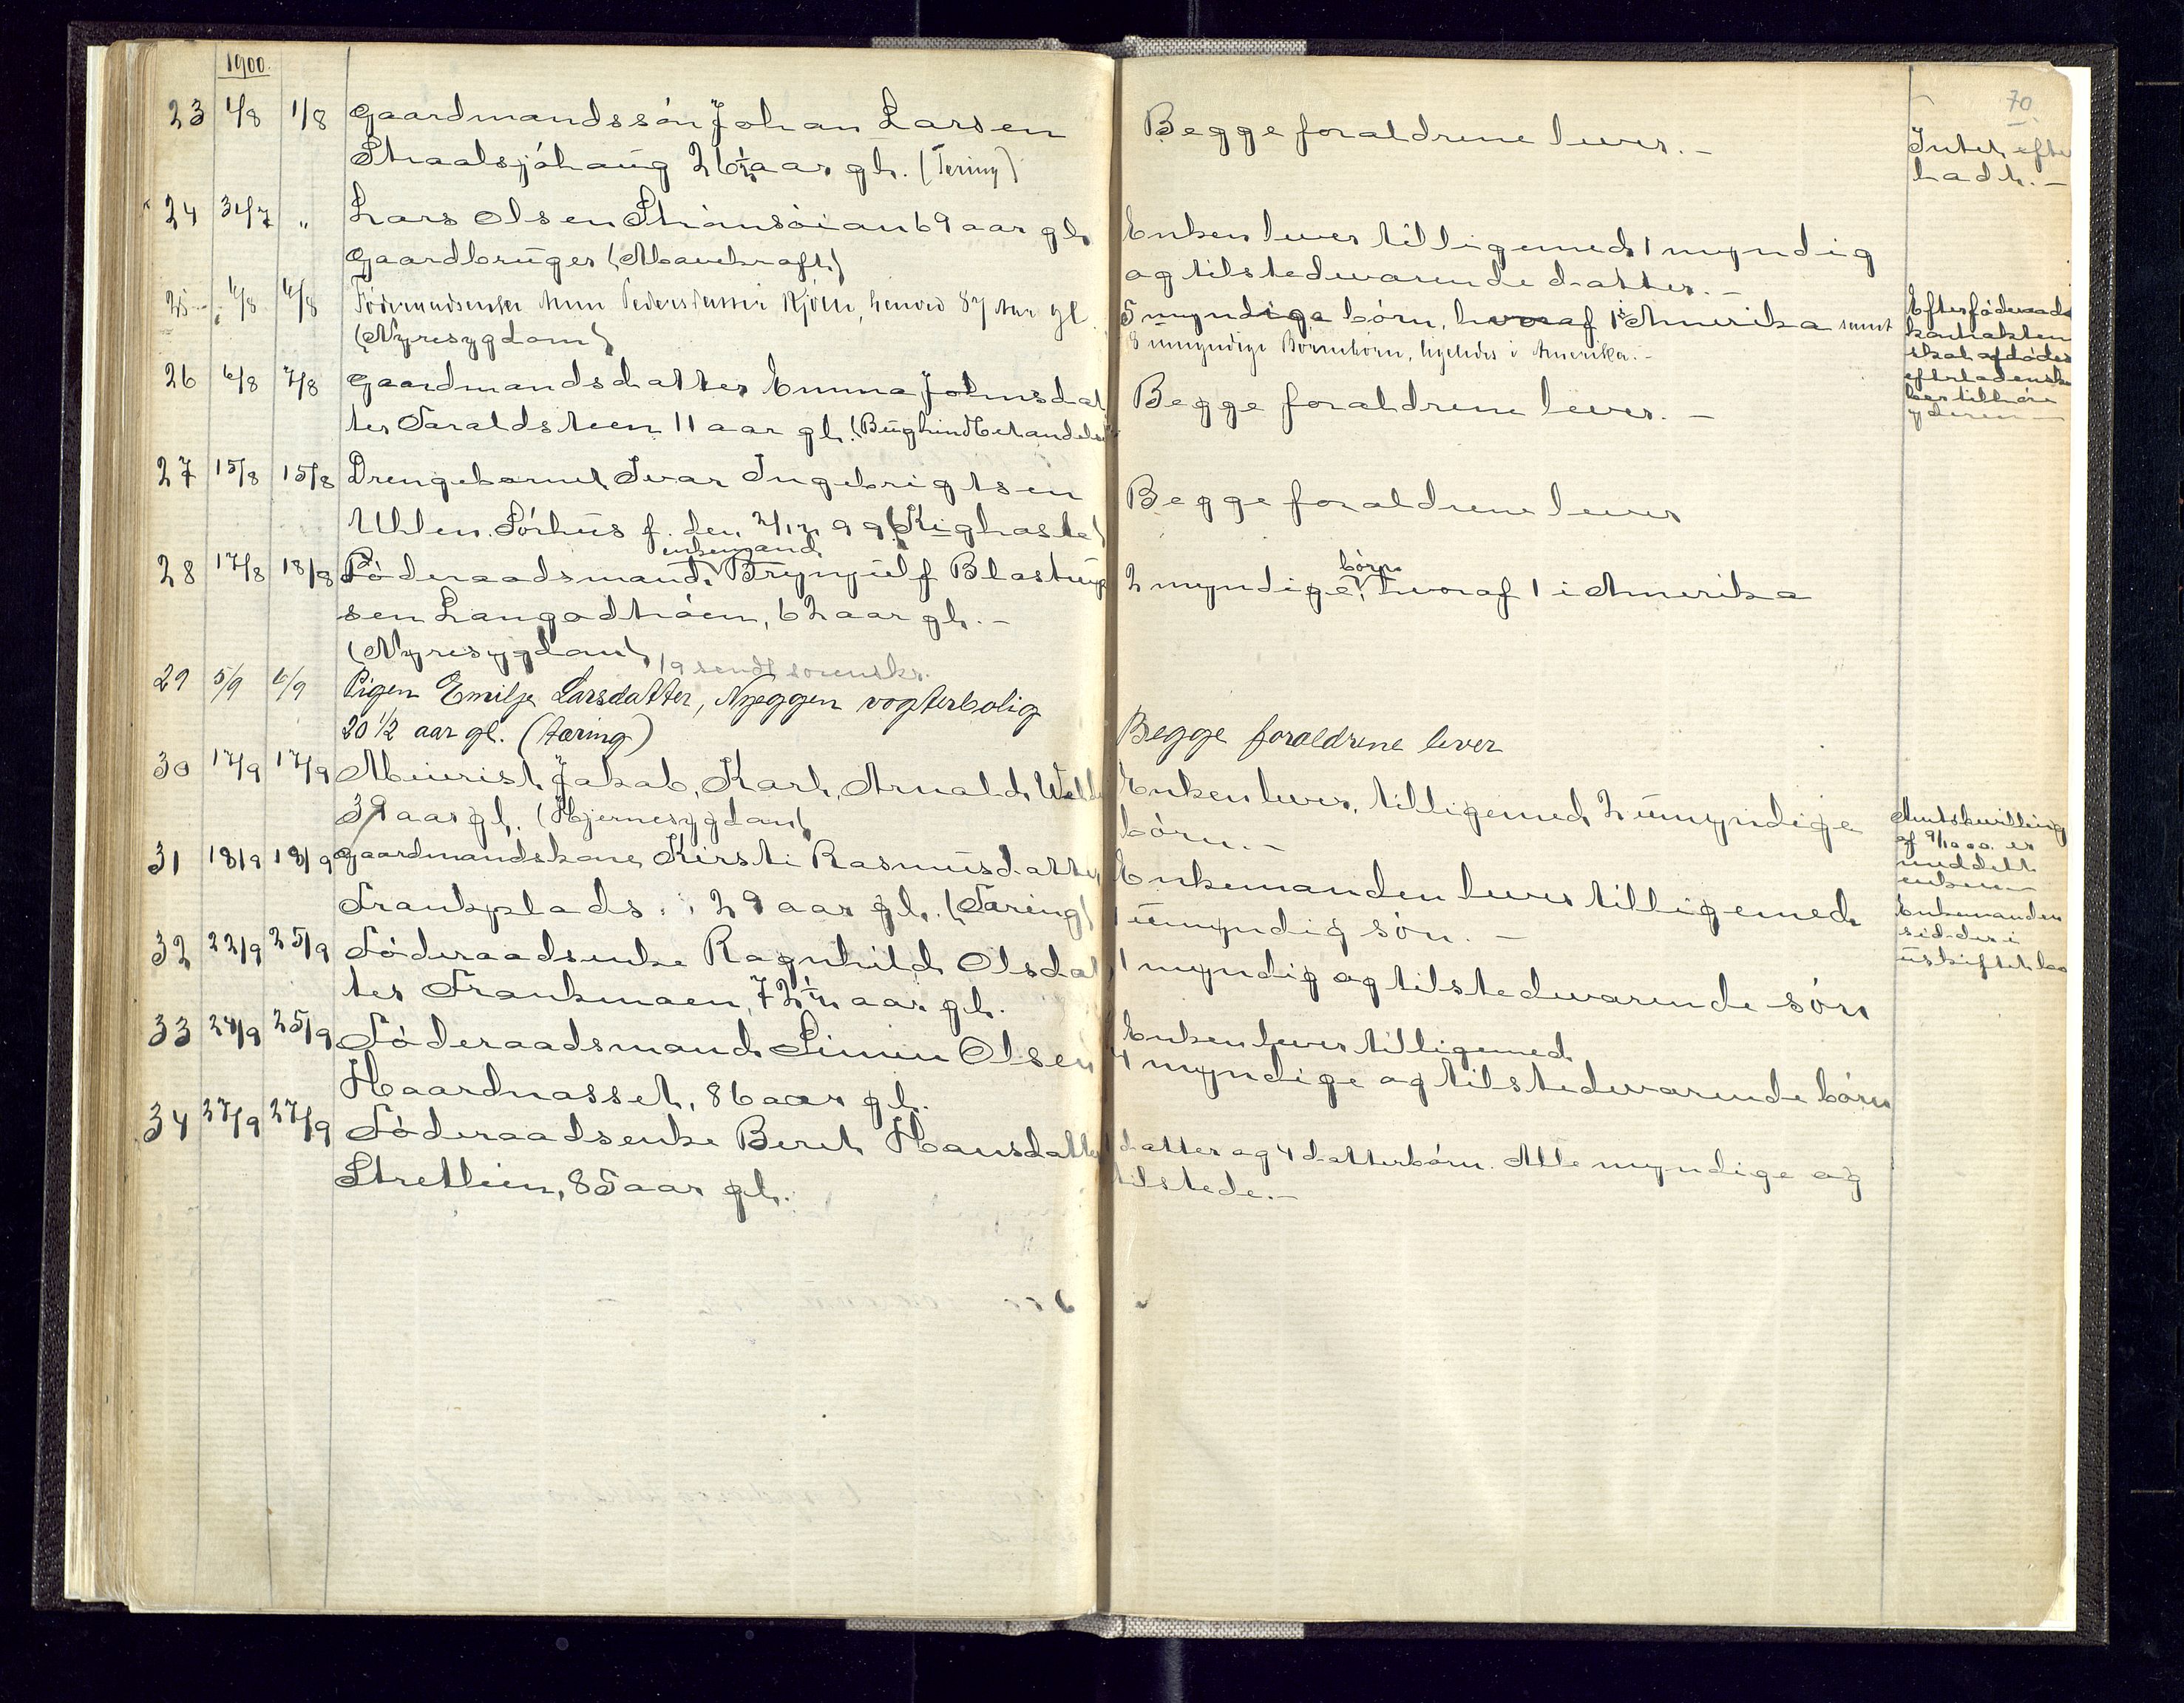 1900.
70
23 1/8 1/8 Gaardmandssøn Johan Larsen
Straalsjøhaug 26½ aar gl. (Tæring)
Begge forældrene lever. –
Intet efter
ladt. –
24 31/7 „ Lars Olsen Strømsøian 69 aar gl.
Gaardbruger (Mavekræft)
Enken lever tilligemed 1 myndig
og tilstedeværende datter. –
25 6/8 Føderaadsenke Pedersdatter henved 87 aar gl.
(Nyresygdom)
5 myndige børn, hvoraf 1 i Amerika samt
8 umyndige Børnebørn, ligeledes i Amerika. –
Efter føderaads
kontrakten
skal afdødes
efterladenska
ber tilhøre
yderen –
26 6/8 7/8 Gaardmandsdatter Emma Johnsdat
ter Taraldsteen 11 aar gl. (Bughindebetændelse)
Begge forældrene lever. –
27 15/8 15/8 Drengebarnet Ivar Ingebrigtsen
Uhlen. Sørhus f. den 2/12 99 (Kighoste)
Begge forældrene lever
28 17/8 18/8 Føderaadsmand, enkemand Brynjulf Blastrup
sen Langodtrøen, 62 aar gl. –
(Nyresygdom) sendt sorenskr.
2 myndige børn, hvoraf 1 i Amerika
29 5/9 6/9 Pigen Emilje Larsdatter, Njeggen vogterbolig
20 1/2 aar gl. (tæring)
Begge forældrene lever
30 17/9 17/9 Meierist Jakob, Karl, Arnold
39 aar gl. (Hjernesygdom)
Enken lever, tilligemed 2 umyndige
børn. –
Amtsbevilling
af 9/10 00. er
meddelt
enken –
31 18/9 18/9 Gaardmandskone Kirsti Rasmusdatter
Frankplads. 29 aar gl. (Tæring)
Enkemanden lever tilligemed
1 umyndig søn. –
Enkemanden
sidder i
uskiftet bo
32 22/9 25/9 Føderaadsenke Ragnhild Olsdat
ter Frankmoen, 72½ aar gl.
1 myndig og tilstedeværende søn
33 24/9 25/9 Føderaadsmand Simen Olsen
Haardnasset, 86 aar gl.
Enken lever tilligemed
4 myndige og tilstedeværende børn
34 27/9 27/9 Føderaadsenke Beret Hansdatter
Stretlien, 85 aar gl.
datter og 4 datterbørn. Alle myndige og
tilstede. –